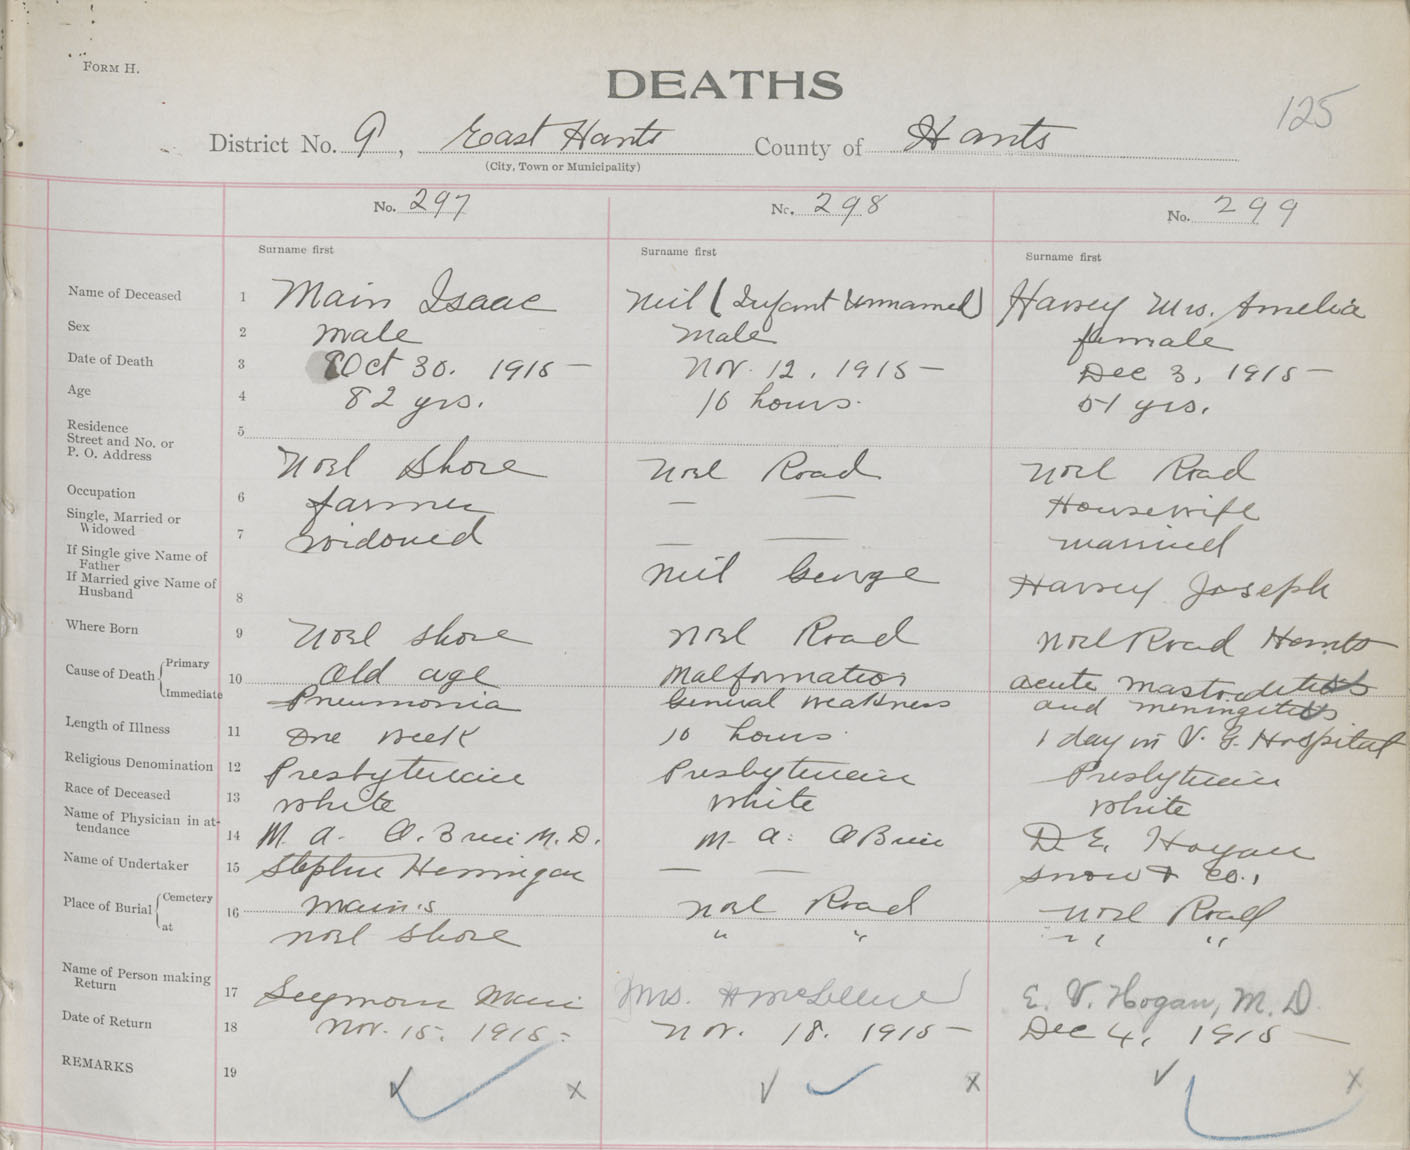 FORM H.
DEATHS
125
District No. 9, East Hants County of Hants
(City, Town or Municipality)
No. 297 No. 298 No. 299
Surname first Surname first Surname first
Name of Deceased 1 Main Isaac Neil (Infant Unnamed) Harvey Mrs. Amelia
Sex 2 male male female
Date of Death 3 Oct 30. 1915 – Nov. 12. 1915 – Dec 3, 1915 –
Age 4 82 yrs. 10 hours. 51 yrs.
Residence
Street and No. or 5
P. O. Address Noel Shore Noel Road Noel Road
Occupation 6 farmer — — Housewife
Single, Married or
Widowed 7 widowed — — married
If Single give Name of
Father
If Married give Name of
Husband 8 Neil George Harvey Joseph
Where Born 9 Noel Shore Noel Road Noel Road Hants
Cause of Death Primary 10 Old age Malformation acute mastoiditis
Immediate Pneumonia General weakness and meningitis
Length of Illness 11 One week 10 hours 1 day in V. G. Hospital
Religious Denomination 12 Presbyterian Presbyterian Presbyterian
Race of Deceased 13 white white white
Name of Physician in at-
tendance 14 M. A. O'Brien M. D. M. A. O'Brien D. E. Hogan
Name of Undertaker 15 Stephen Hennigar — — Snow & Co.,
Place of Burial Cemetery 16 Main's Noel Road Noel Road
at Noel Shore " " " "
Name of Person making
Return 17 Seymour Main Mrs. E. V. Hogan, M. D.
Date of Return 18 Nov. 15. 1915 – Nov. 18. 1915 – Dec 4, 1915 —
REMARKS 19 x x x